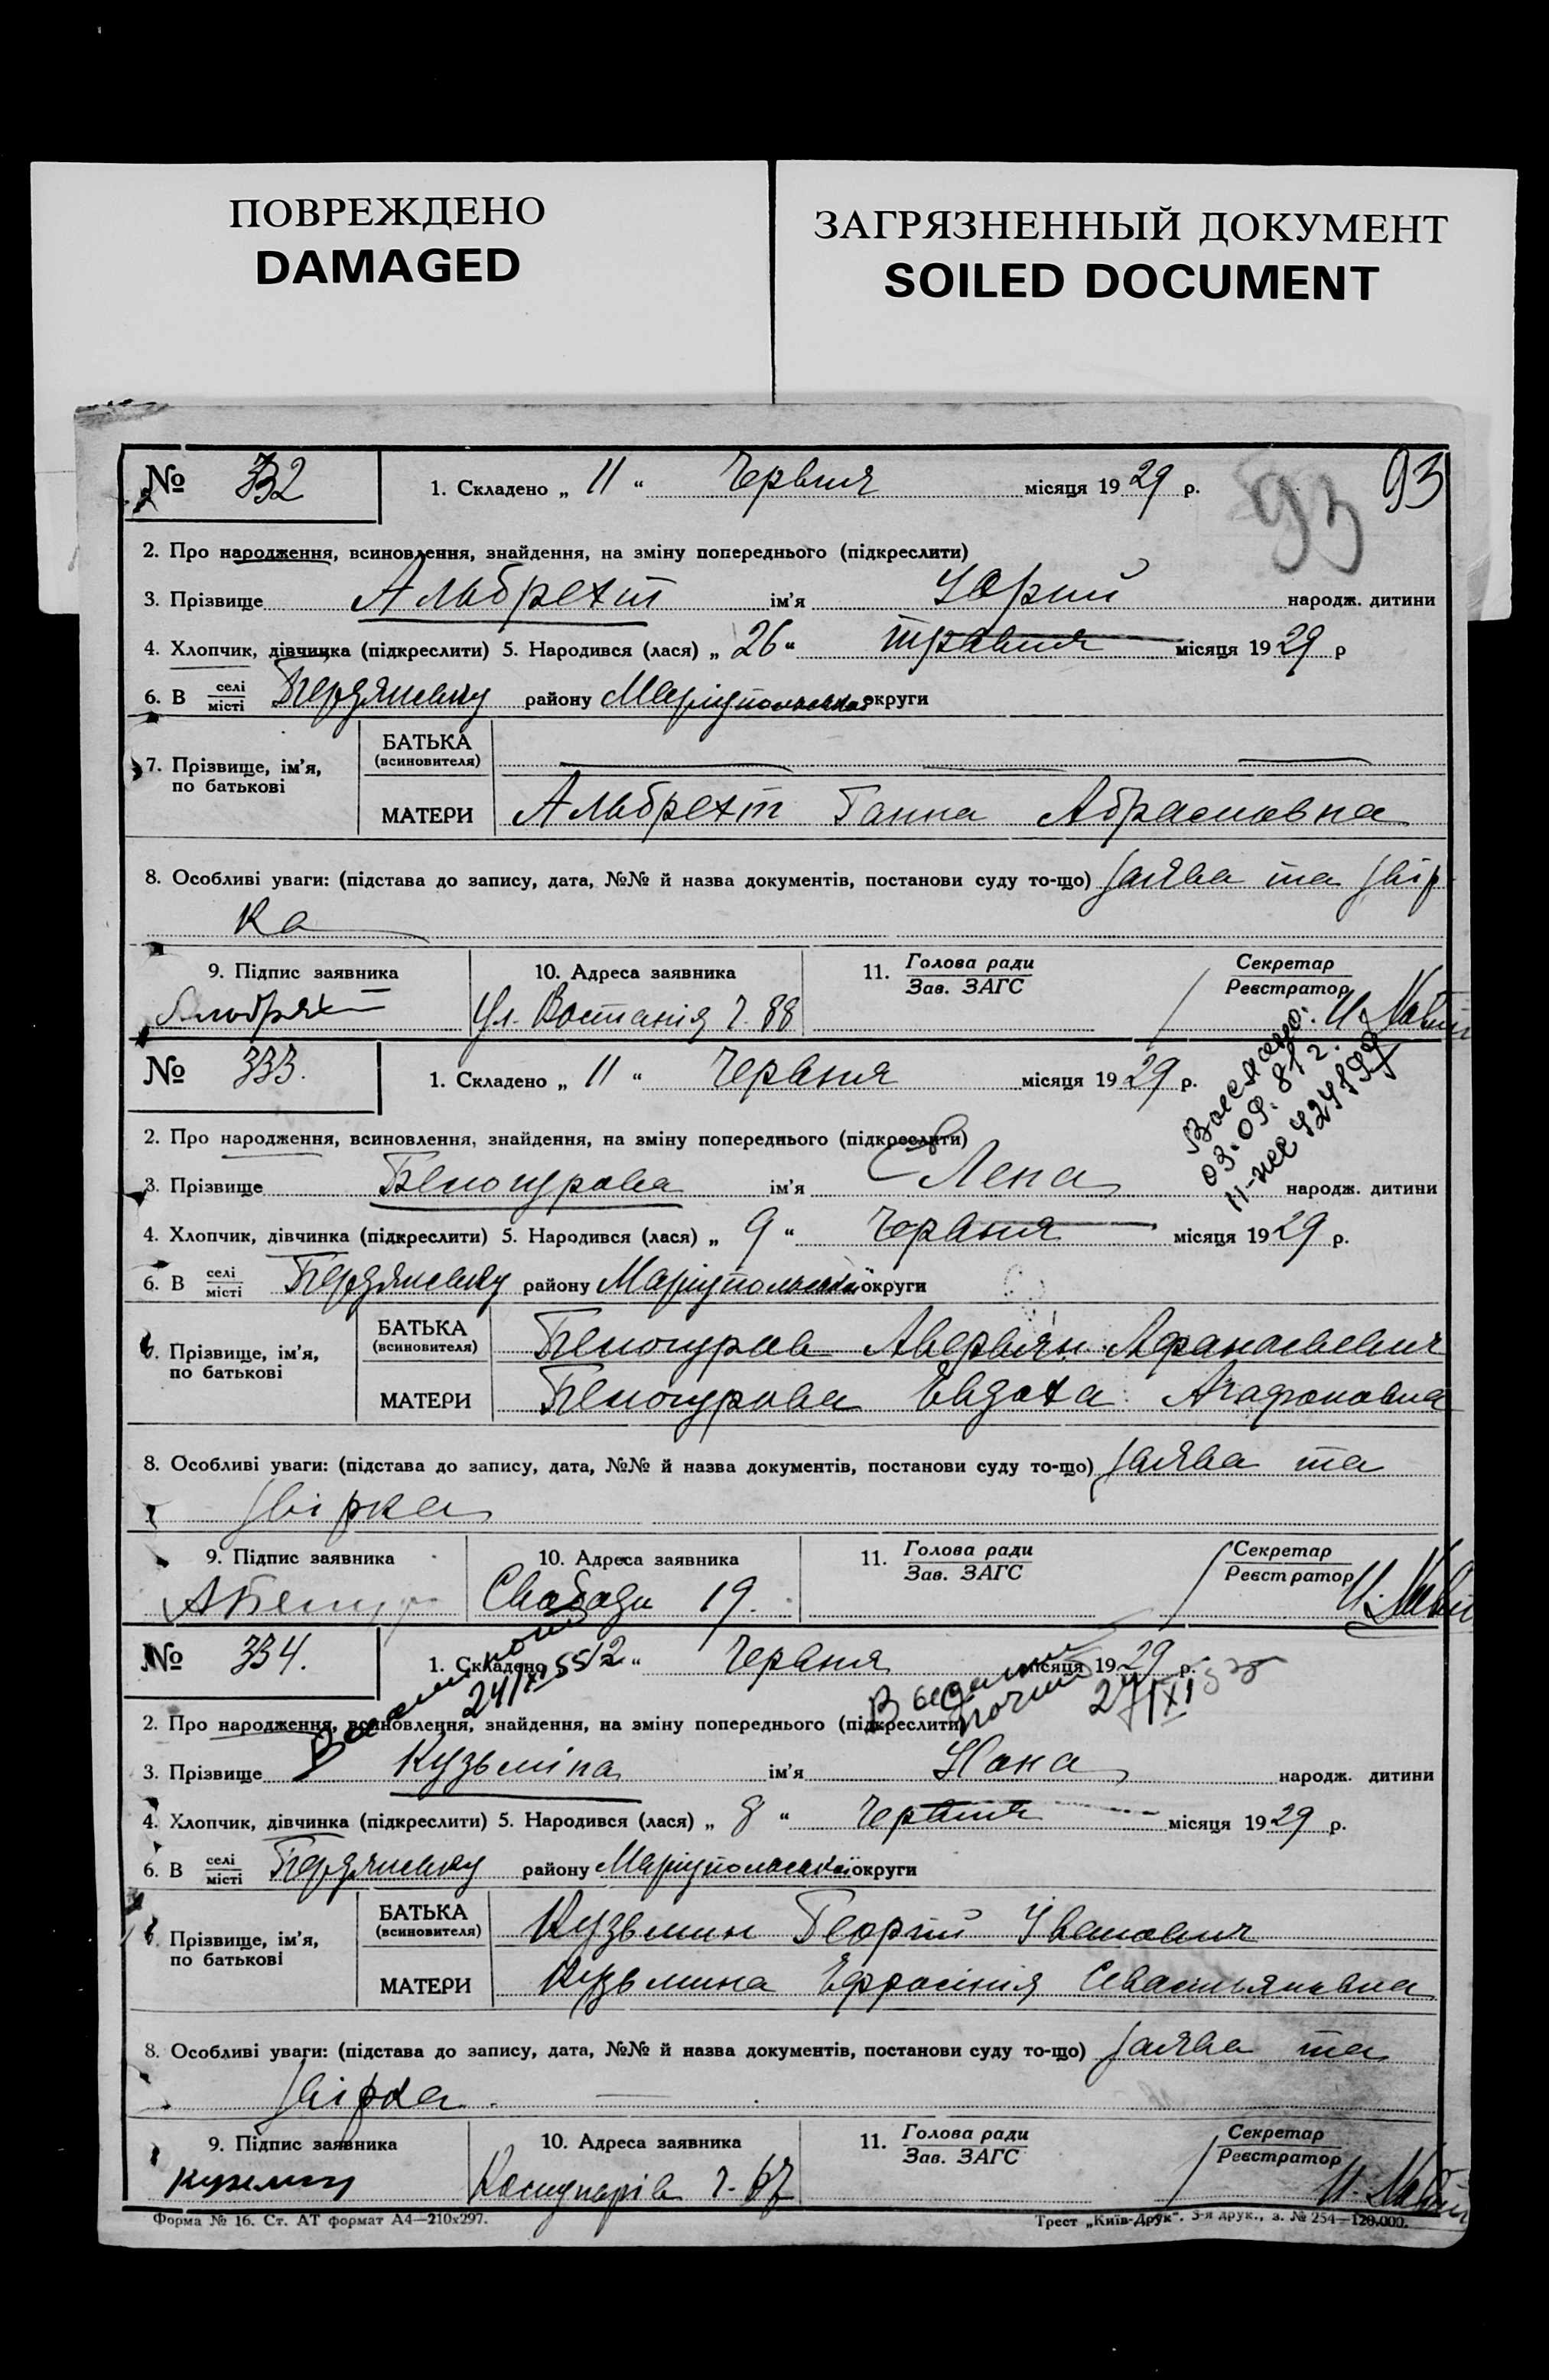 ПОВРЕЖДЕНО
DAMAGED
ЗАГРЯЗНЕННЫЙ ДОКУМЕНТ
SOILED DOCUMENT
93 93
№ 332 1. Складено „ 11 “ Червня місяця 1929 р.
2. Про народження, всиновлення, знайдення, на зміну попереднього (підкреслити)
3. Прізвище Альбрехт ім'я Юрий народж. дитини
4. Хлопчик, дівчинка (підкреслити) 5. Народився (лася) „ 26 “ травня місяця 1929 р
6. В селі/місті Бердянську району Маріупольської округи
7. Прізвище, ім'я, по батькові
БАТЬКА (всиновителя) — — —
МАТЕРИ Альбрехт Ганна Абрамовна
8. Особливі уваги: (підстава до запису, дата, №№ й назва документів, постанови суду то-що) заява та звір
ка
9. Підпис заявника 10. Адреса заявника 11. Голова ради/Зав. ЗАГС Секретар/Реєстратор
Ул. Востанія ч. 88
№ 333. 1. Складено „ 11 “ Червня місяця 1929 р.
03.09.81 г.
2. Про народження, всиновлення, знайдення, на зміну попереднього (підкреслити)
3. Прізвище Белогурова ім'я Лена народж. дитини
4. Хлопчик, дівчинка (підкреслити) 5. Народився (лася) „ 9 “ Червня місяця 1929 р.
6. В селі/місті Бердянську району Маріупольської округи
Прізвище, ім'я, по батькові
БАТЬКА (всиновителя) Белогуров Аверьян Афанасьевич
МАТЕРИ Белогурова Евдоха Агафоновна
8. Особливі уваги: (підстава до запису, дата, №№ й назва документів, постанови суду то-що) заява та
звірка
9. Підпис заявника 10. Адреса заявника 11. Голова ради/Зав. ЗАГС Секретар/Реєстратор
Свободи 19.
№ 334. 1. Складено 12 “ Червня місяця 1929 р.
24/XI 55
2. Про народження, всиновлення, знайдення, на зміну попереднього (підкреслити)
3. Прізвище Кузьміна ім'я Нона народж. дитини
4. Хлопчик, дівчинка (підкреслити) 5. Народився (лася) „ 8 “ Червня місяця 1929 р.
6. В селі/місті Бердянську району Маріупольської округи
Прізвище, ім'я, по батькові
БАТЬКА (всиновителя) Кузьмин Георгій Іванович
МАТЕРИ Кузьмина Ефросінія Севастьяновна
8. Особливі уваги: (підстава до запису, дата, №№ й назва документів, постанови суду то-що) заява та
звірка.
9. Підпис заявника 10. Адреса заявника 11. Голова ради/Зав. ЗАГС Секретар/Реєстратор
Комунарів ч. 67
Форма № 16. Ст. АТ формат А4—210х297. Трест „Київ-Друк“. 3-я друк., з. № 254—120.000.